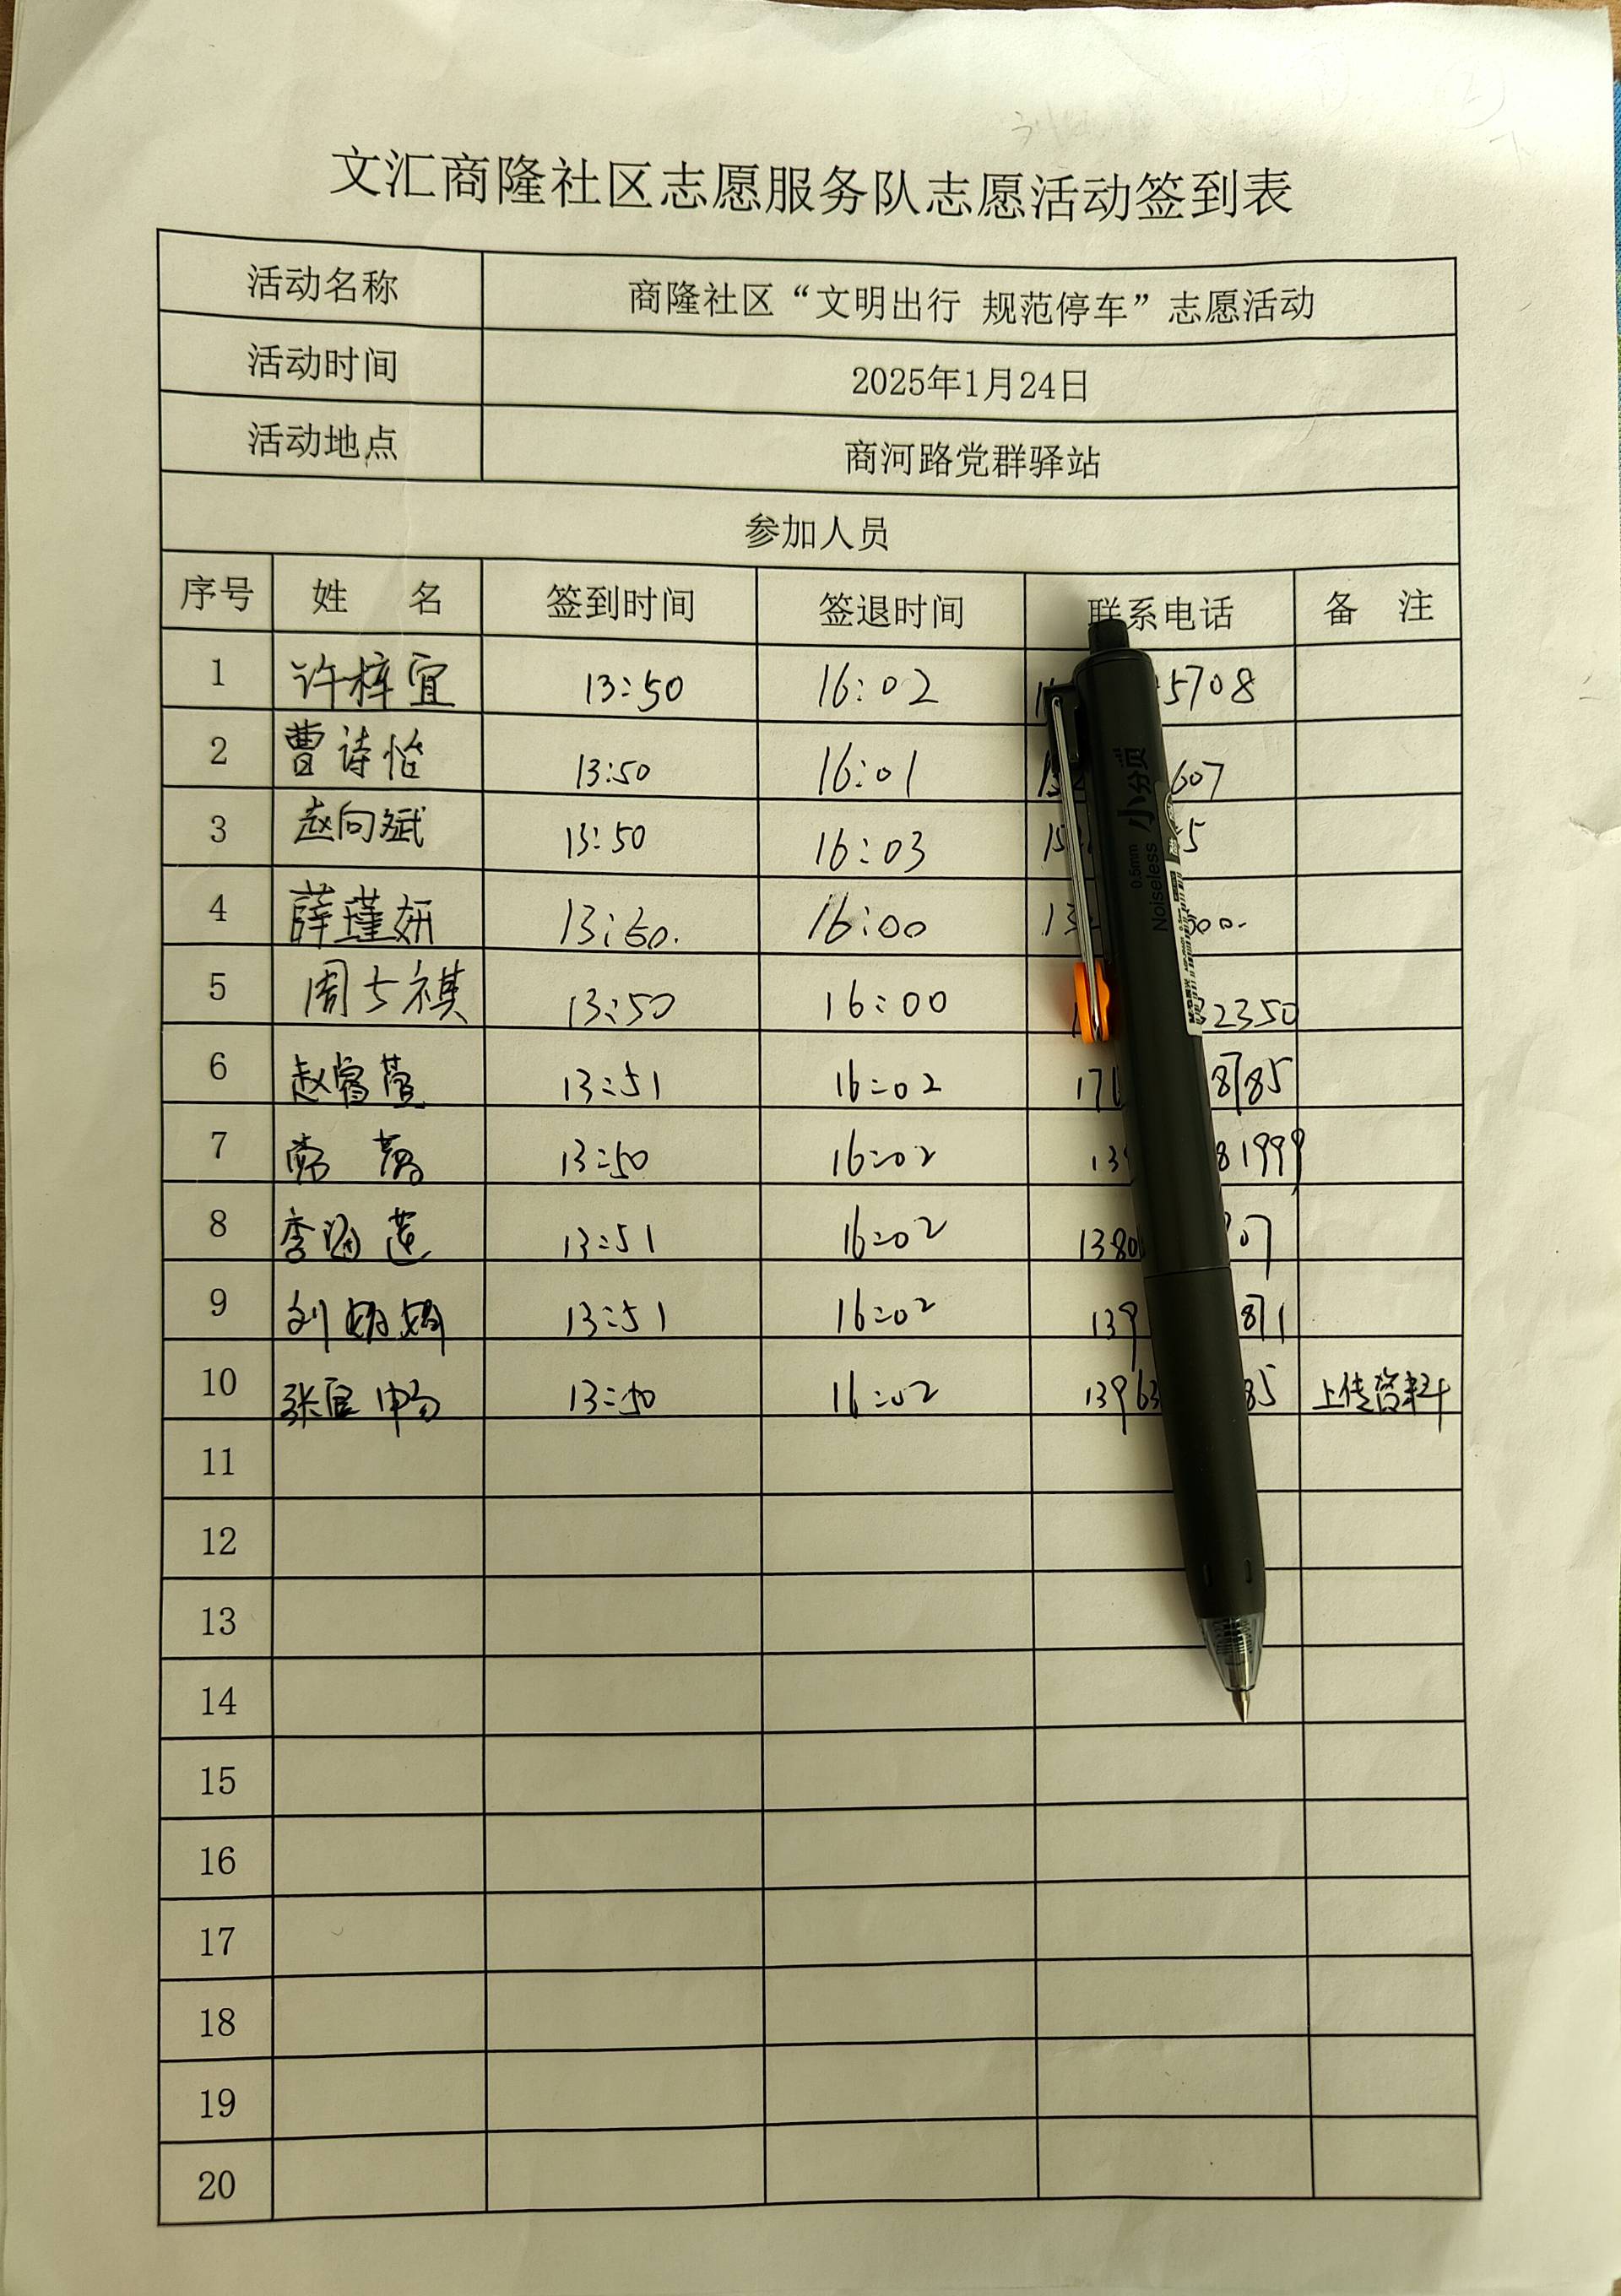 文汇商隆社区志愿服务队志愿活动签到表
活动名称 商隆社区“文明出行 规范停车”志愿活动
活动时间 2025年1月24日
活动地点 商河路党群驿站
参加人员
序号 姓 名 签到时间 签退时间 联系电话 备 注
1 许梓宜 13:50 16:02 5708
2 曹诗怡 13:50 16:01 607
3 赵向斌 13:50 16:03 5
4 薛瑾妍 13:50. 16:00 13 000.
5 周士祺 13:50 16:00 32350
6 赵睿萱 13:51 16:02 176 8785
7 13:50 16:02 139 81999
8 李涵莲 13:51 16:02 1380 07
9 刘娟娟 13:51 16:02 139 871
10 张 13:50 16:02 13963 85 上传资料
11
12
13
14
15
16
17
18
19
20
小分贝
0.5mm
Noiseless